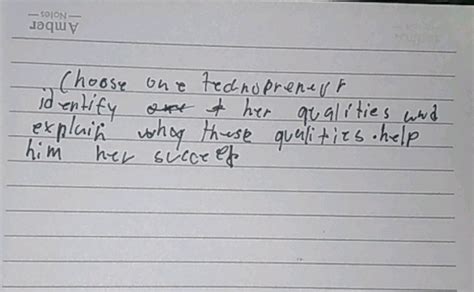 Amber
Notes
Choose one tednopreneur
identify her qualities and
explain whoy these qualities.help
him her success